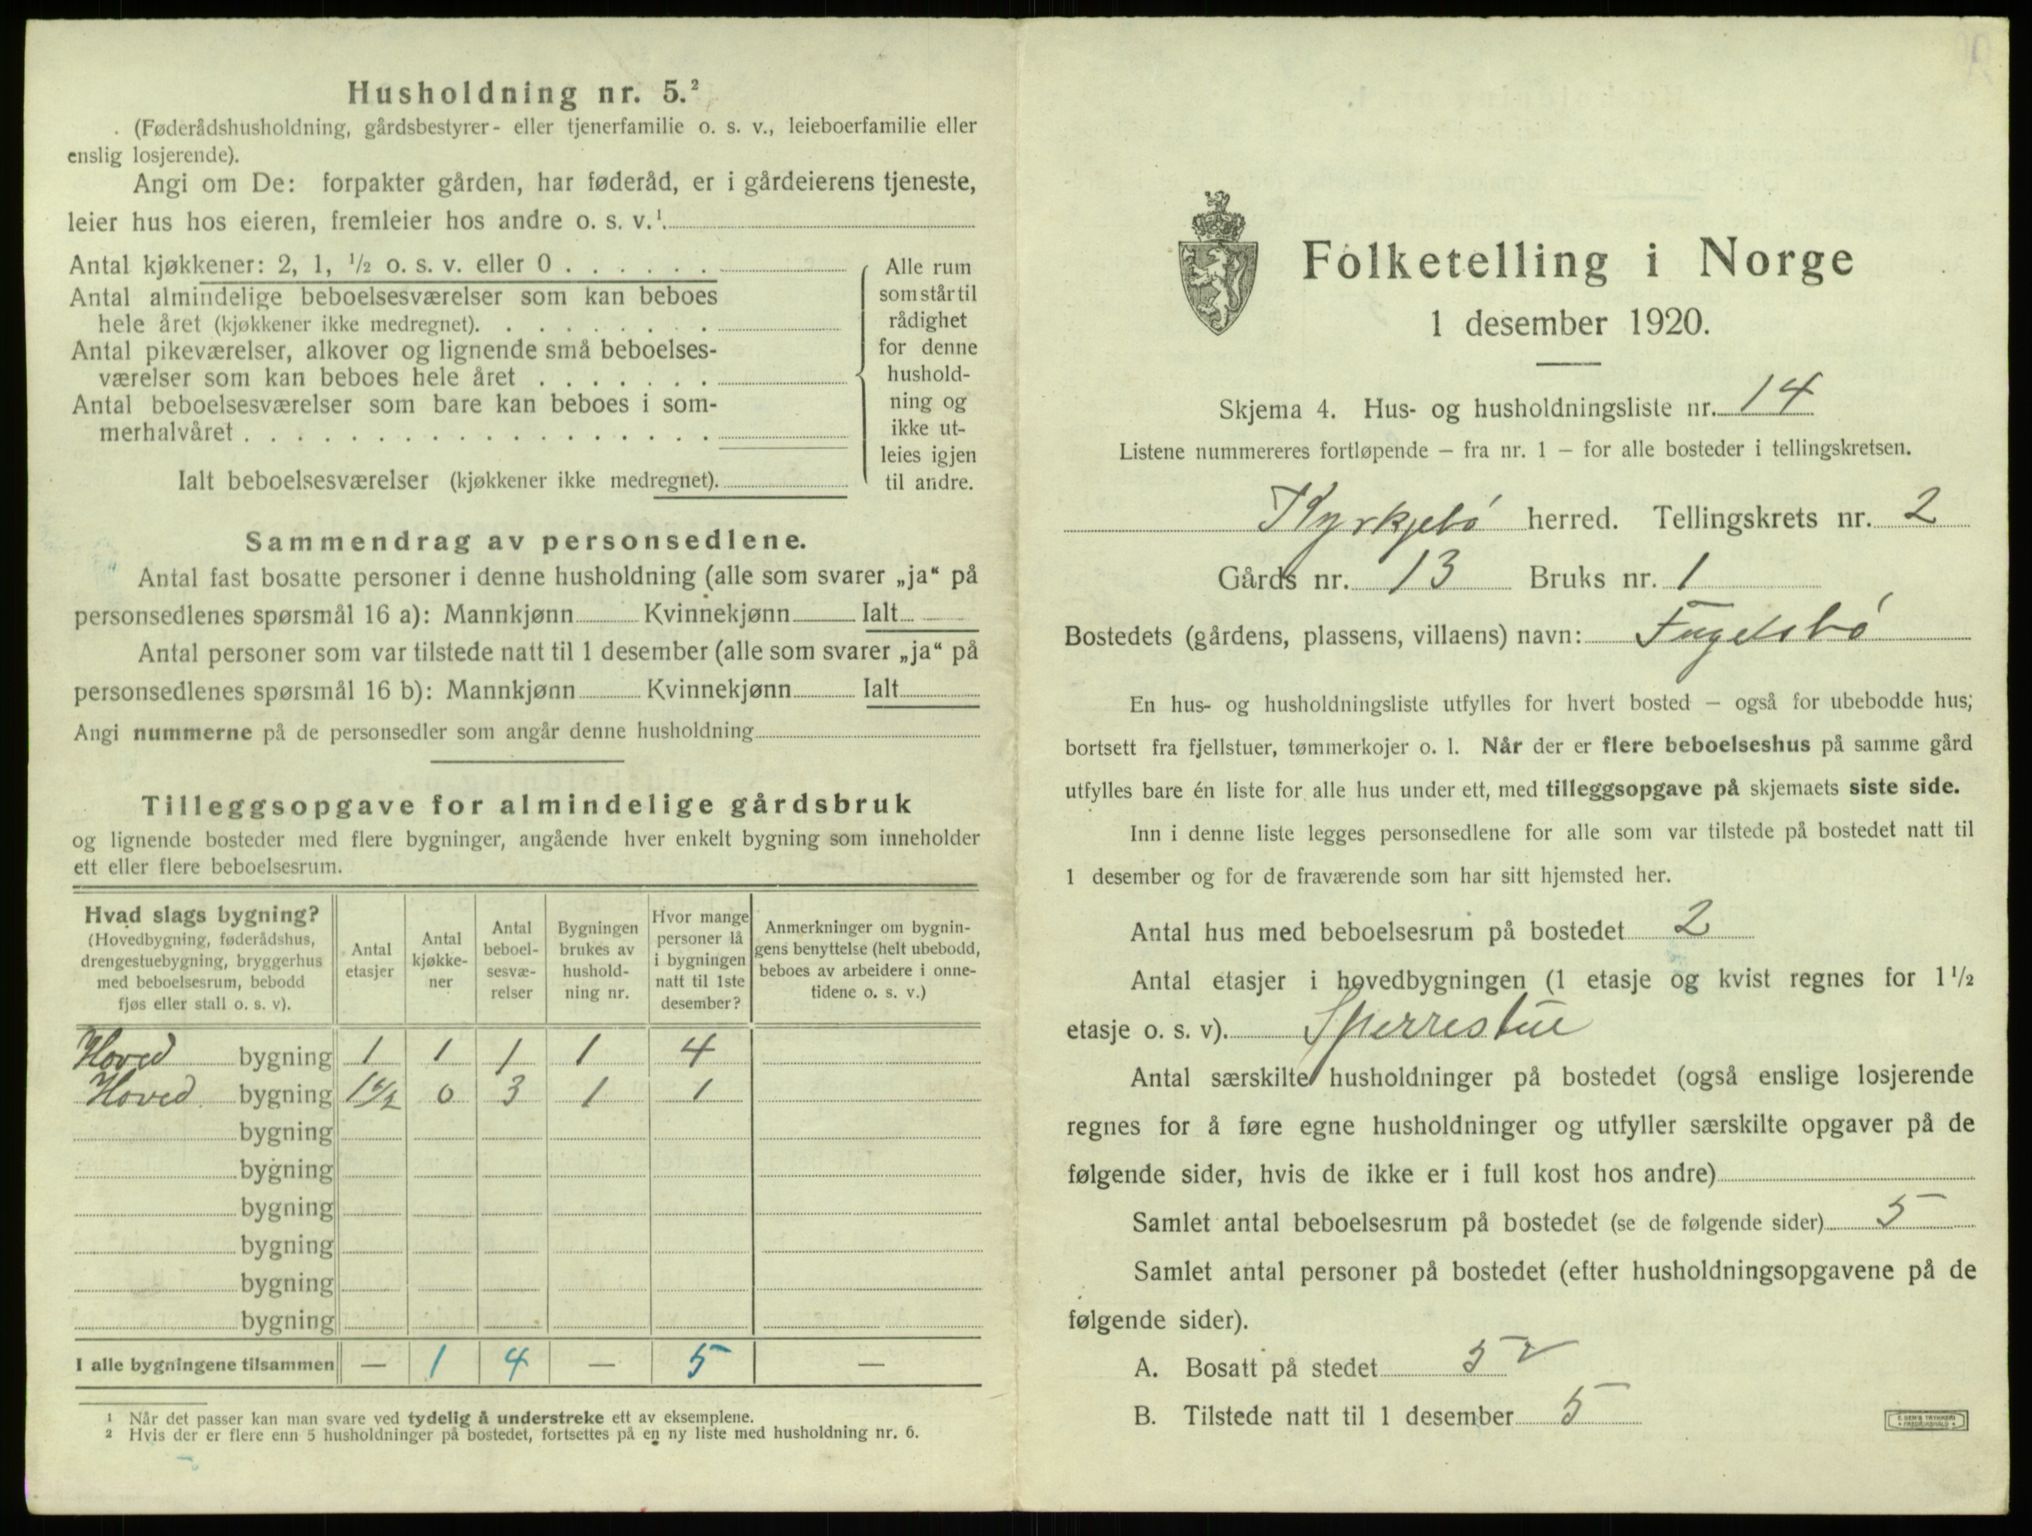 Husholdning nr. 5.²
. (Føderådshusholdning, gårdsbestyrer- eller tjenerfamilie o. s. v., leieboerfamilie eller
enslig losjerende).
Angi om De: forpakter gården, har føderåd, er i gårdeierens tjeneste,
leier hus hos eieren, fremleier hos andre o. s. v.¹.
Antal kjøkkener: 2, 1, ½ o. s. v. eller 0 . . . . . .
Antal almindelige beboelsesværelser som kan beboes
hele året (kjøkkener ikke medregnet). . . . . . . . .
Antal pikeværelser, alkover og lignende små beboelses-
værelser som kan beboes hele året . . . . . . .
Antal beboelsesværelser som bare kan beboes i som-
merhalvåret . . . . . . . . . . . . . . . . . .
Ialt beboelsesværelser (kjøkkener ikke medregnet).
Alle rum
som står til
rådighet
for denne
hushold-
ning og
ikke ut-
leies igjen
til andre.
Sammendrag av personsedlene.
Antal fast bosatte personer i denne husholdning (alle som svarer „ja“ på
personsedlenes spørsmål 16 a): Mannkjønn Kvinnekjønn Ialt
Antal personer som var tilstede natt til 1 desember (alle som svarer „ja“ på
personsedlenes spørsmål 16 b): Mannkjønn Kvinnekjønn Ialt
Angi nummerne på de personsedler som angår denne husholdning
Tilleggsopgave for almindelige gårdsbruk
og lignende bosteder med flere bygninger, angående hver enkelt bygning som inneholder
ett eller flere beboelsesrum.
Hvad slags bygning?
(Hovedbygning, føderådshus,
drengestuebygning, bryggerhus
med beboelsesrum, bebodd
fjøs eller stall o. s. v).
Antal
etasjer
Antal
kjøkke-
ner
Antal
beboel-
sesvæ-
relser
Bygningen
brukes av
hushold-
ning nr.
Hvor mange
personer lå
i bygningen
natt til 1ste
desember?
Anmerkninger om bygnin-
gens benyttelse (helt ubebodd,
beboes av arbeidere i onne-
tidene o. s. v.)
Hoved bygning 1 1 1 1 4
Hoved bygning 1½ 0 3 1 1
bygning
bygning
bygning
bygning
bygning
bygning
I alle bygningene tilsammen — 1 4 — 5 —
¹ Når det passer kan man svare ved tydelig å understreke ett av eksemplene.
² Hvis der er flere enn 5 husholdninger på bostedet, fortsettes på en ny liste med husholdning nr. 6.
Folketelling i Norge
1 desember 1920.
Skjema 4. Hus- og husholdningsliste nr. 14
Listene nummereres fortløpende – fra nr. 1 – for alle bosteder i tellingskretsen.
Kyrkjebó herred. Tellingskrets nr. 2
Gårds nr. 13 Bruks nr. 1
Bostedets (gårdens, plassens, villaens) navn: Fugelsbó
En hus- og husholdningsliste utfylles for hvert bosted – også for ubebodde hus;
bortsett fra fjellstuer, tømmerkojer o. l. Når der er flere beboelseshus på samme gård
utfylles bare én liste for alle hus under ett, med tilleggsopgave på skjemaets siste side.
Inn i denne liste legges personsedlene for alle som var tilstede på bostedet natt til
1 desember og for de fraværende som har sitt hjemsted her.
Antal hus med beboelsesrum på bostedet 2
Antal etasjer i hovedbygningen (1 etasje og kvist regnes for 1½
etasje o. s. v). Sperrestue
Antal særskilte husholdninger på bostedet (også enslige losjerende
regnes for å føre egne husholdninger og utfyller særskilte opgaver på de
følgende sider, hvis de ikke er i full kost hos andre)
Samlet antal beboelsesrum på bostedet (se de følgende sider) 5
Samlet antal personer på bostedet (efter husholdningsopgavene på de
følgende sider).
A. Bosatt på stedet 5
B. Tilstede natt til 1 desember 5